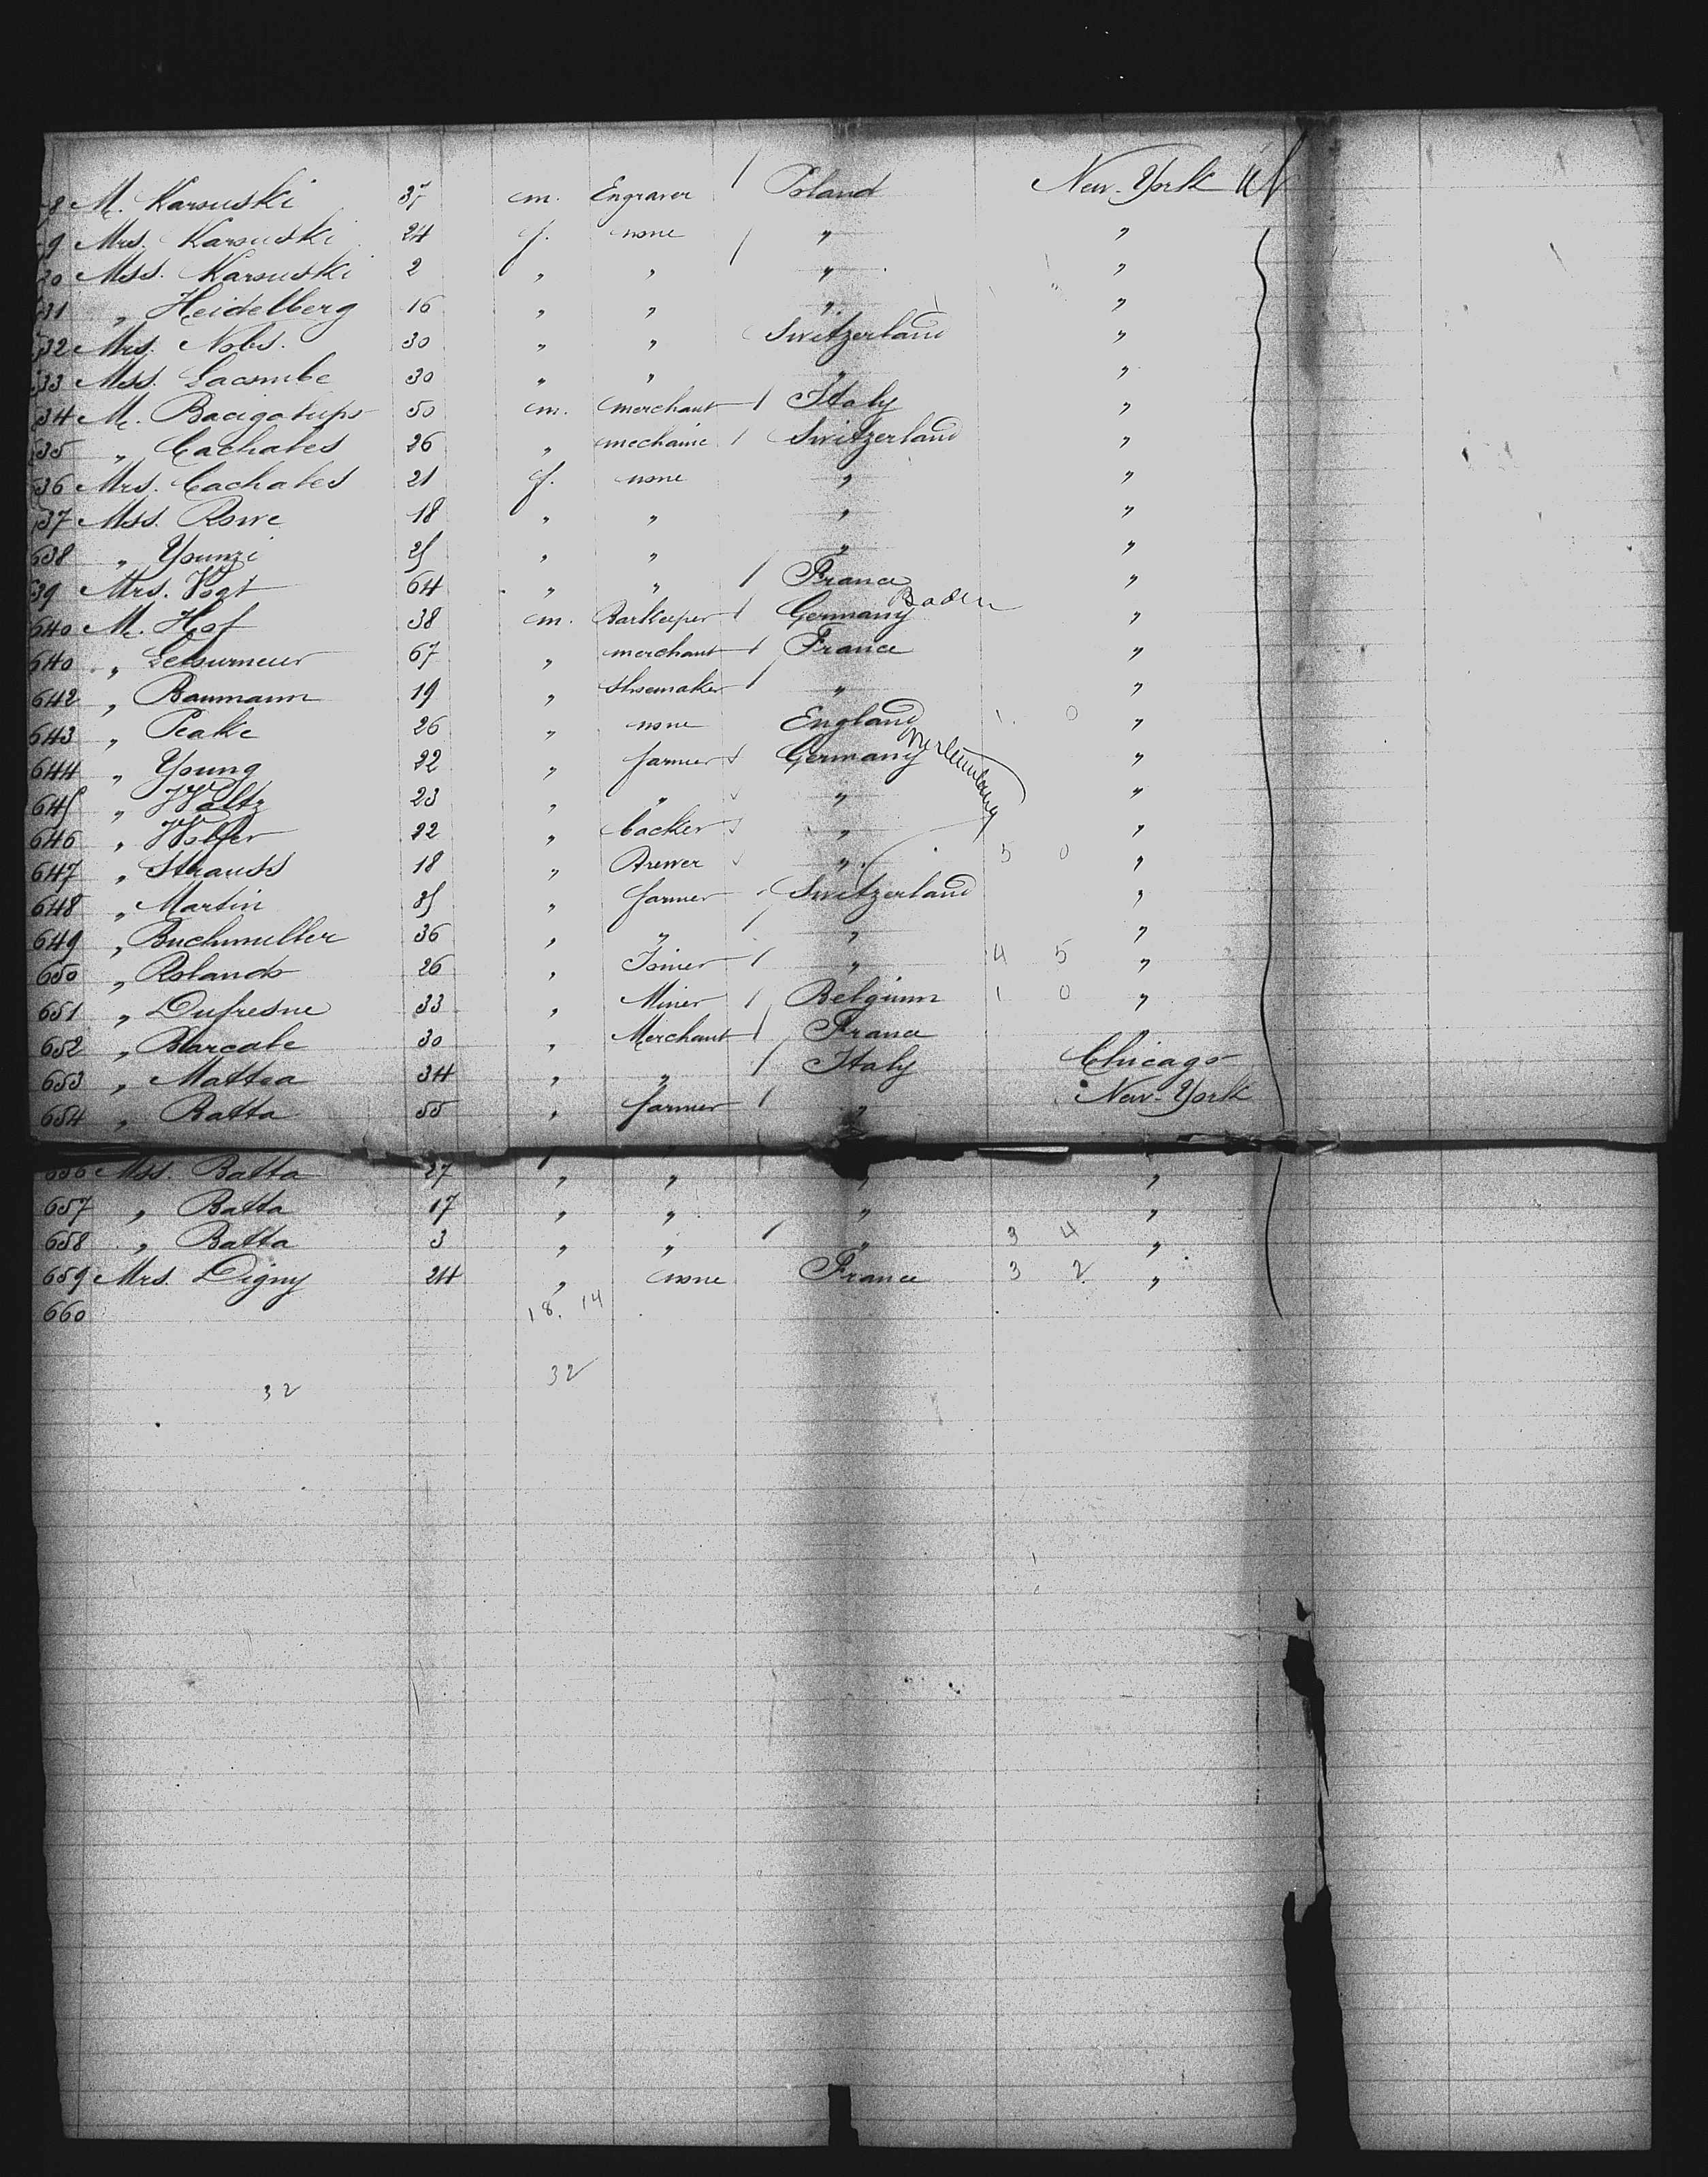 8 M. Karsuski 37 m. Engraver / Poland New-York
9 Mrs. Karsuski 24 f. none / " "
30 Mss. Karsuski 2 " " " "
31 " Heidelberg 16 " " " "
632 Mrs. Nobs. 30 " " Switzerland "
633 Mss. Lacombe 30 " " " "
634 M. Bacigalupo 50 m. merchant / Italy "
635 " Cachates 26 " mechanic / Switzerland "
636 Mrs. Cachates 21 f. none " "
637 Mss. Rowe 18 " " " "
638 " Younzi 25 " " " "
639 Mrs. Vogt 64 " " / France "
640 M. Hof 38 m. Barkeeper / Germany Baden "
640 " Letourneur 67 " merchant / France "
642 " Baumann 19 " Shoemaker / " "
643 " Peake 26 " none England 1. 0 "
644 " Young 22 " farmer Germany "
645 " Waltz 23 " " " "
646 " Wolfer 22 " backer " "
647 " Strauss 18 " Brewer " 5 0 "
648 " Martin 35 " farmer Switzerland "
649 " Buchmuller 36 " " / " "
650 " Rolando 26 " Joiner / " 4 5 "
651 " Dufresne 33 " Miner / Belgium 1 0 "
652 " Barcate 30 " Merchant / France "
653 " Mattea 34 " " / Italy Chicago
654 " Batta 55 " farmer / " New-York
656 Mss. Batta 27 " " " "
657 " Batta 17 " " " "
658 " Batta 3 " " / " 3 4 "
659 Mrs. Digny 24 " none France 3 2 "
660 18. 14
32 32